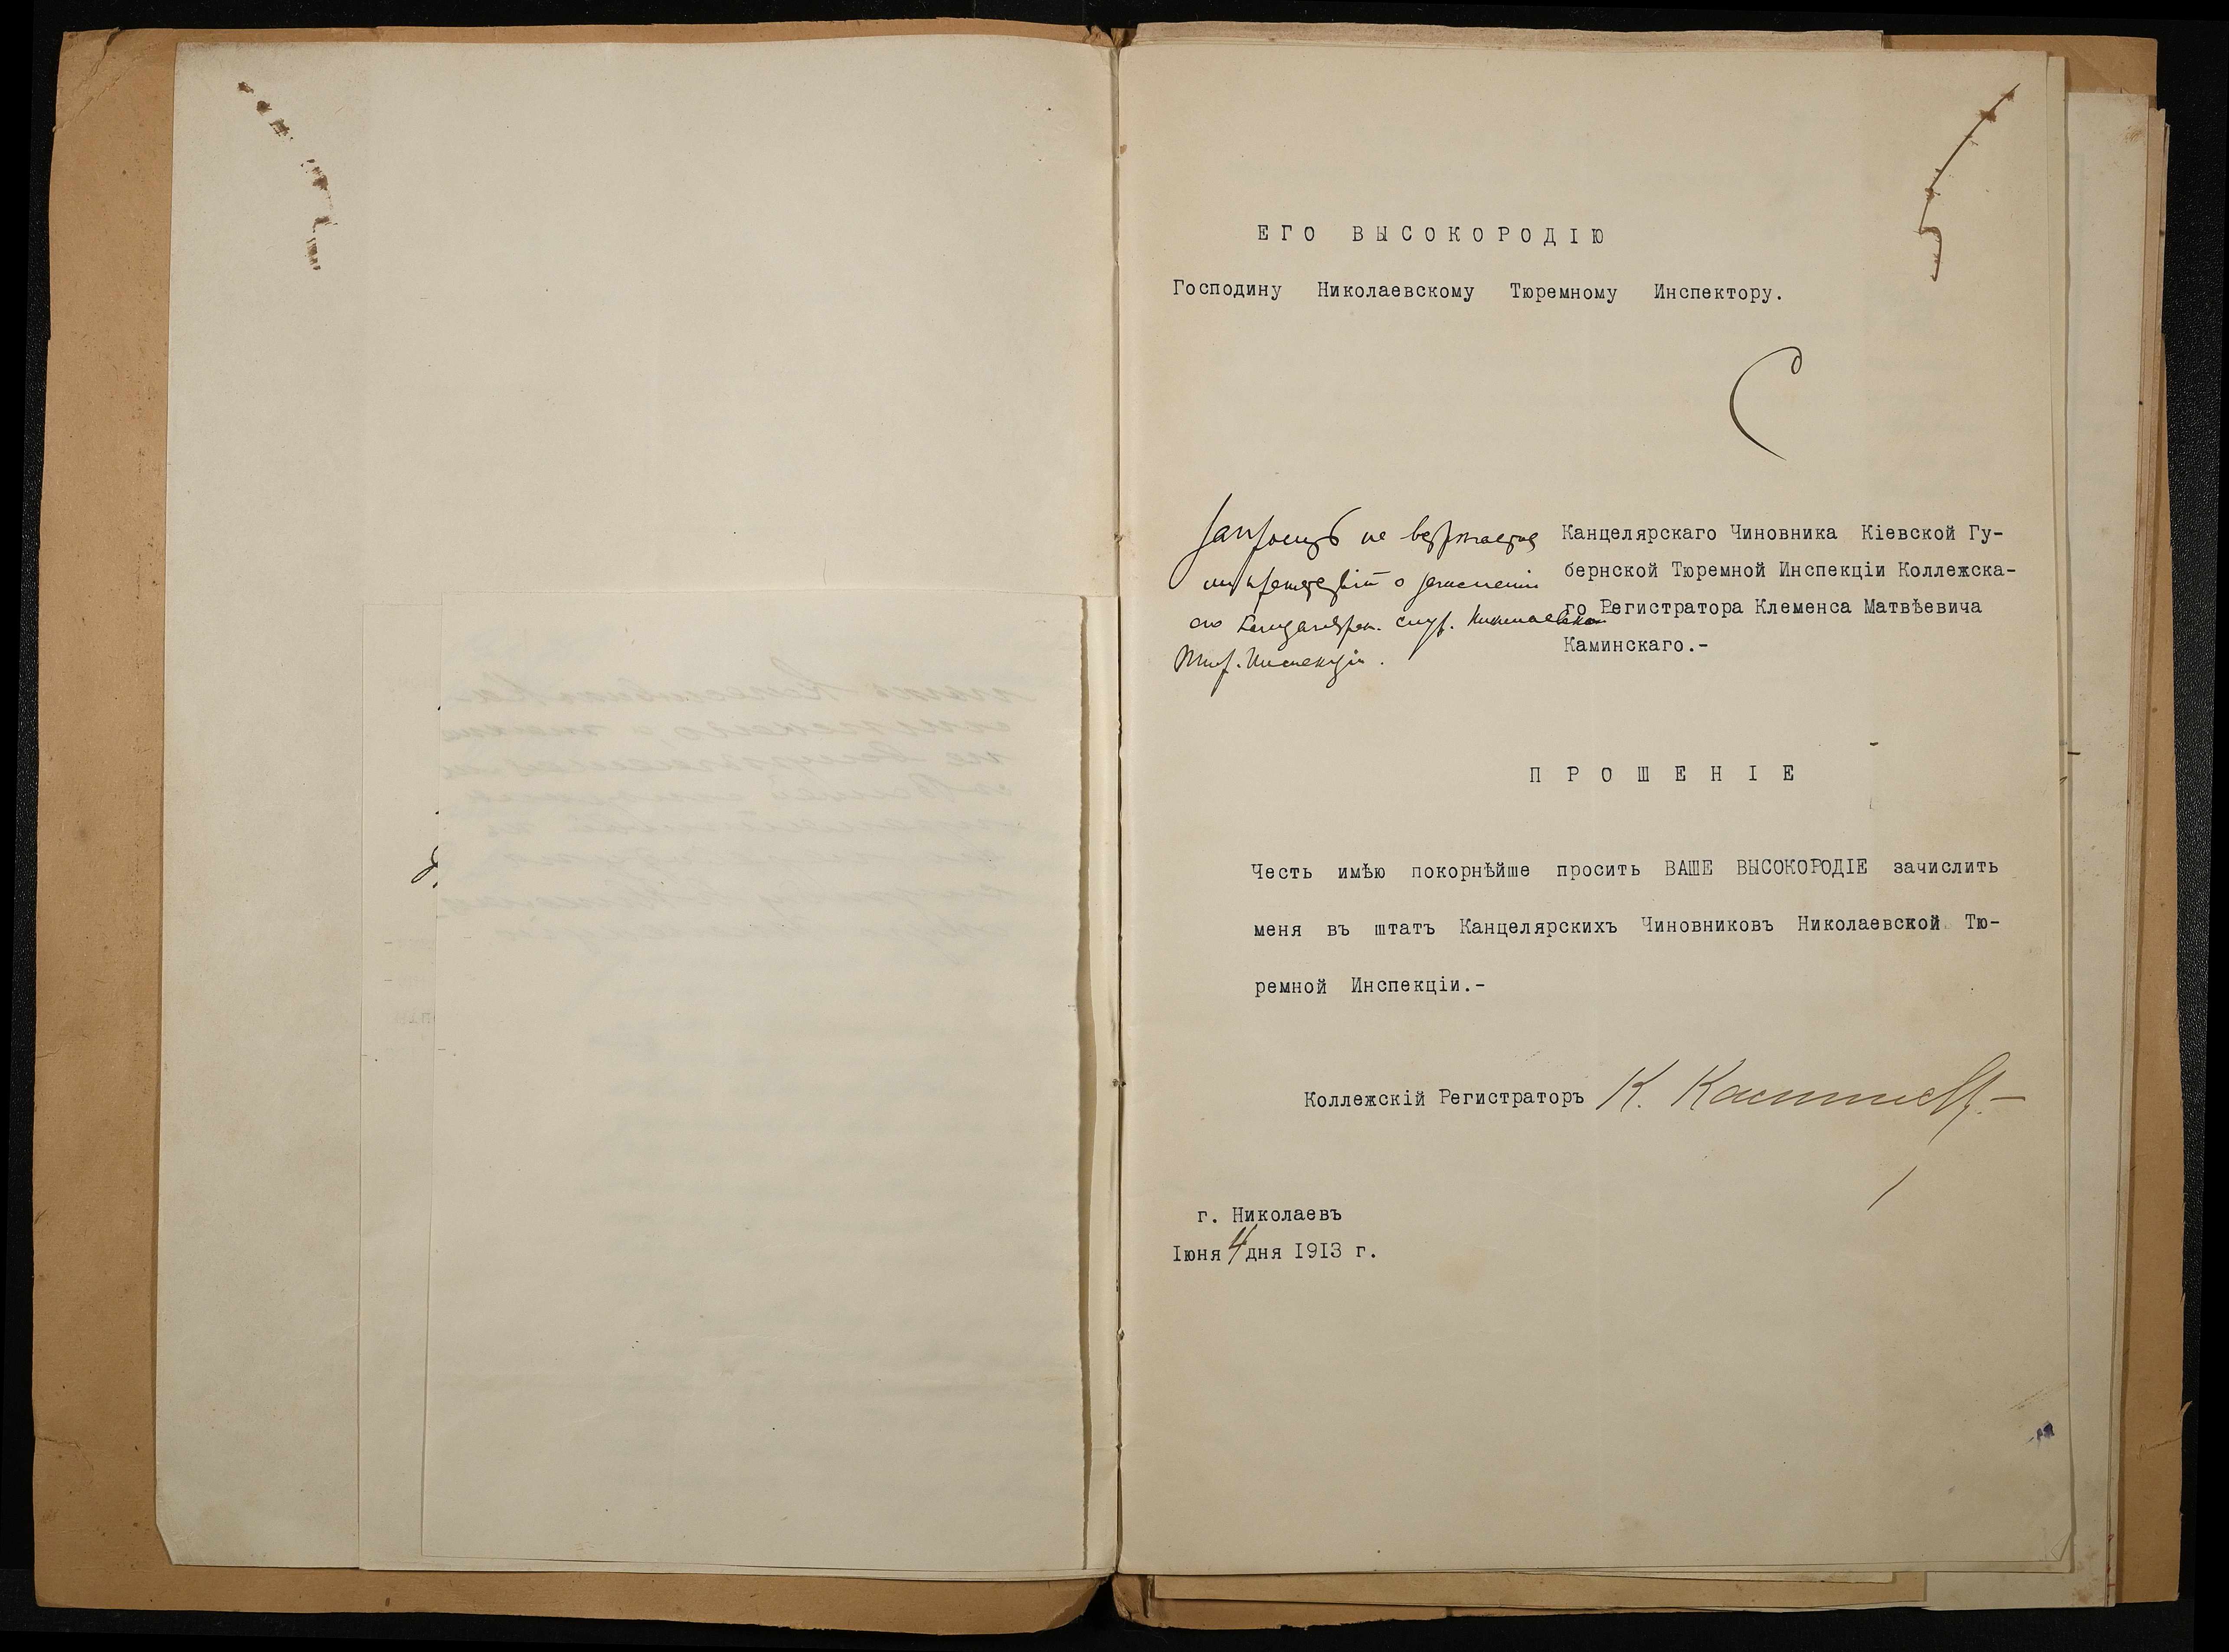 ЕГО ВЫСОКОРОДІЮ
Господину Николаевскому Тюремному Инспектору.
Запросить не встрѣчается
ли препятствій о зачисленіи
его канцелярск. служ. Николаевской
Тюр. Инспекціи.
Канцелярскаго Чиновника Кіевской Гу-
бернской Тюремной Инспекціи Коллежска-
го Регистратора Клеменса Матвѣевича
Каминскаго.-
ПРОШЕНІЕ
Честь имѣю покорнѣйше просить ВАШЕ ВЫСОКОРОДІЕ зачислить
меня въ штатъ Канцелярскихъ Чиновниковъ Николаевской Тю-
ремной Инспекціи.-
Коллежскій Регистраторъ К.
г. Николаевъ
Іюня 4 дня 1913 г.